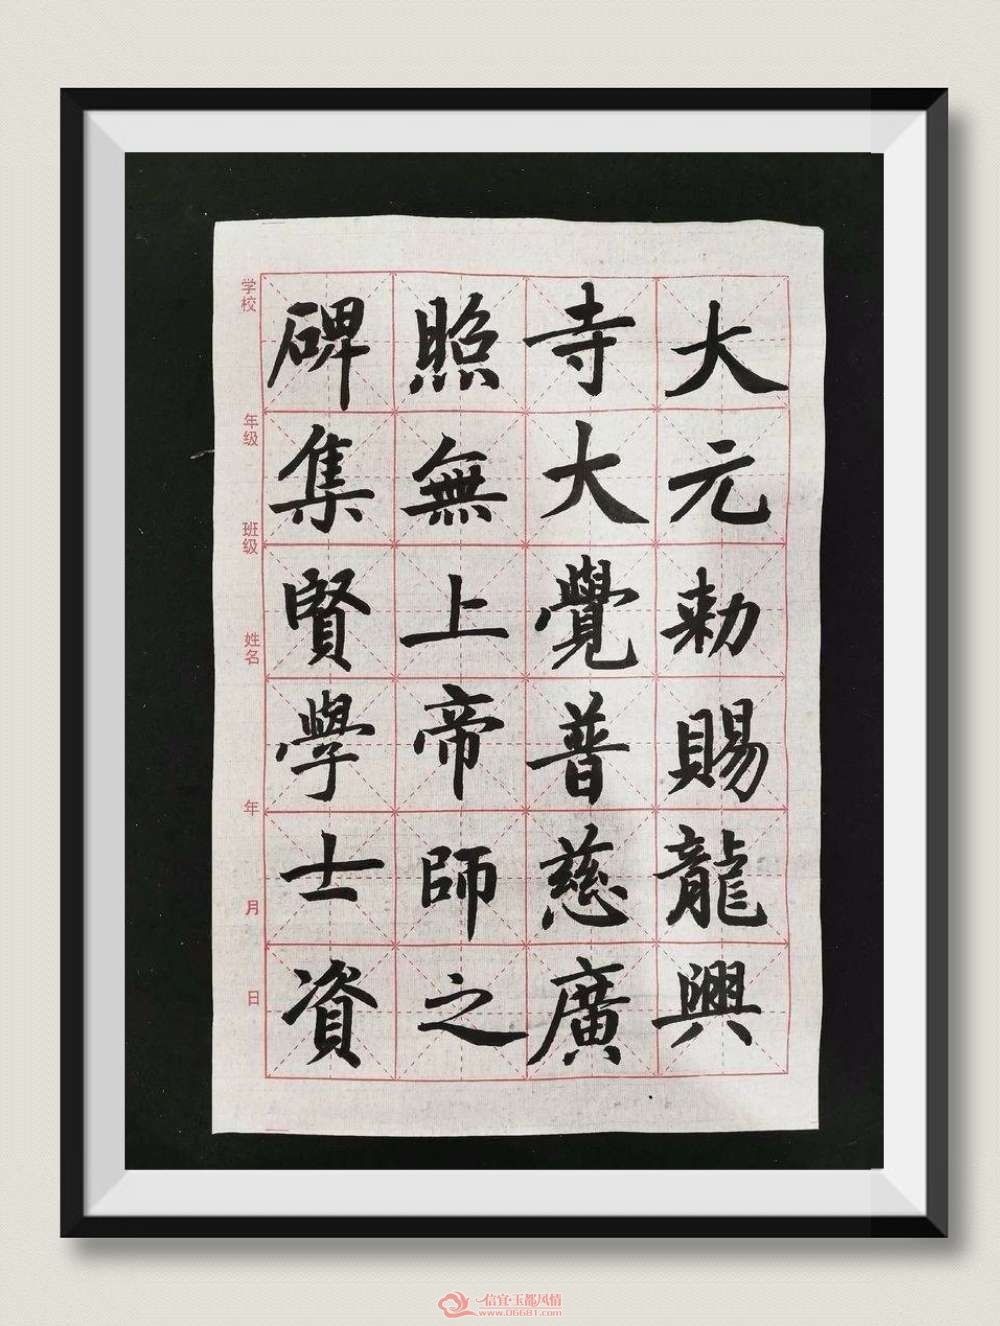 大元勑賜龍興
寺大覺普慈廣
照無上帝師之
碑集賢學士資
学校
年级
班级
姓名
年
月
日
信宜·玉都风情
www.06681.com